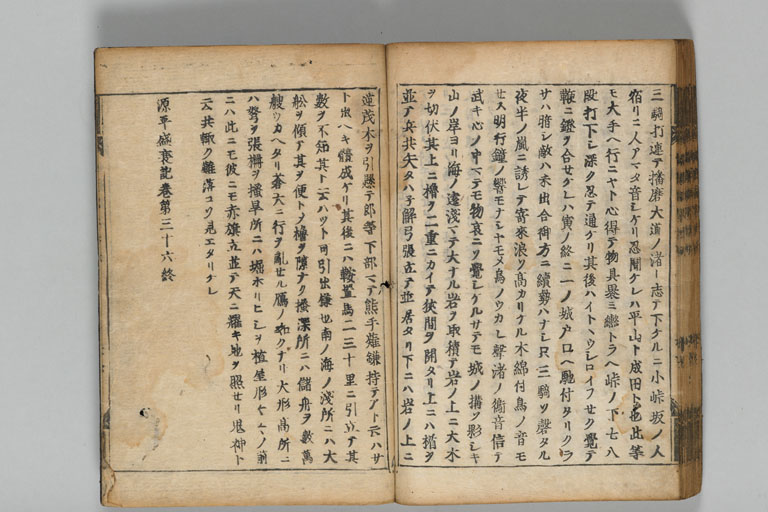 三騎打連テ播磨大道ノ渚ニ志テ下ケルニ小峠坂ノ人
宿リニ人アマタ音シケリ忍聞ケレハ平山ト成田ト也此等
モ大手ヘ行ニヤト心得テ物具異ニ轡トラヘ峠ノ下七八
段打下シ深ク忍テ通ケリ其後ハイトヽウシロイフセク覺テ
鞭ニ鐙ヲ合セケレハ寅ノ終ニ一ノ城戸口ヘ馳付タリクラ
サハ暗シ敵ハ未出合御方ニ續勢ハナシ只三騎ソ磬タル
夜半ノ嵐ニ誘レテ寄來浪ソ高カリケル木綿付鳥ノ音モ
セス明行鐘ノ響モナシヤモメ烏ノウカレ聲渚ノ衛音信テ
武キ心ノ中マテモ物哀ニソ覺シケルサテモ城ノ搆ソ影シキ
山ノ岸ヨリ海ノ遠淺マテ大ナル岩ヲ取積テ岩ノ上ニ大木
ヲ切伏其上ニ櫓ヲ二重ニカイテ狹間ヲ開タリ上ニハ楯ヲ
並テ兵共矢タハ子解弓張立テ並居タリ下ニハ岩ノ上ニ
逆茂木ヲ引懸テ郎等下部マテ熊手薙鎌持テアト云ハサ
ト出ヘキ體成ケリ其後ニハ鞍置馬二三十里ニ引立テ其
數ヲ不知其ト云ハツト可引出樣也南ノ海ノ淺所ニハ大
舩ヲ傾テ其ヲ便トノ櫓ヲ隙ナク搔深所ニハ儲舟ヲ數萬
艘ウカヘタリ蒼天ニ行ヲ亂セル鴈ノ如クナリ大形高所ニ
ハ弩ヲ張搆ヲ搔早所ニハ堀ホリヒシヲ植坐形
ニハ此ニモ彼ニモ赤旗立並テ天ニ耀キ地ヲ照セリ鬼神ト
云共輙ク難落コソ見エタリケレ
源平盛衰記卷第三十六終